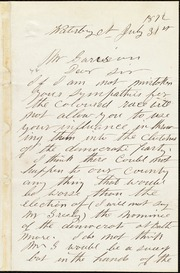 1872
Waterbury Ct July 31st
Mr Garrison
Dear Sir
If I am not mistaken
Your Sympathies for
the Coloured race will
not allow you to use
your influence in throwing
them into the Clutches
of the democratic Party.
I think there Could not
happen to our County
any thing that would
be worse than the
election of (I will not say
Mr Greely) the nominee
of the democrats at Balti
more. I do not think
Mr G would be a snag
but in the hands of the